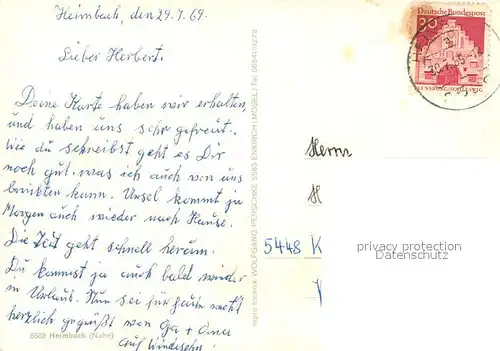 Heimbach, den 29.7.69.
Lieber Herbert.
Deine Karte haben wir erhalten,
und haben uns sehr gefreut.
Wie du schreibst geht es Dir
noch gut. was ich auch von uns
berichten kann. Ursel kommt ja
Morgen auch wieder nach Hause.
Die Zeit geht schnell herum.
Du kommst ja auch bald wieder
in Urlaub. Nun sei für heute recht
herzlich gegrüßt von Oma
Auf Wiedersehn.
6589 Heimbach (Nahe)
WOLFGANG PERSCHKE 5585 ENKIRCH / MOSEL / Tel.
Deutsche Bundespost
30
FLENSBURG/SCHLESWIG
Herrn
H
5448 K
privacy protection
Datenschutz